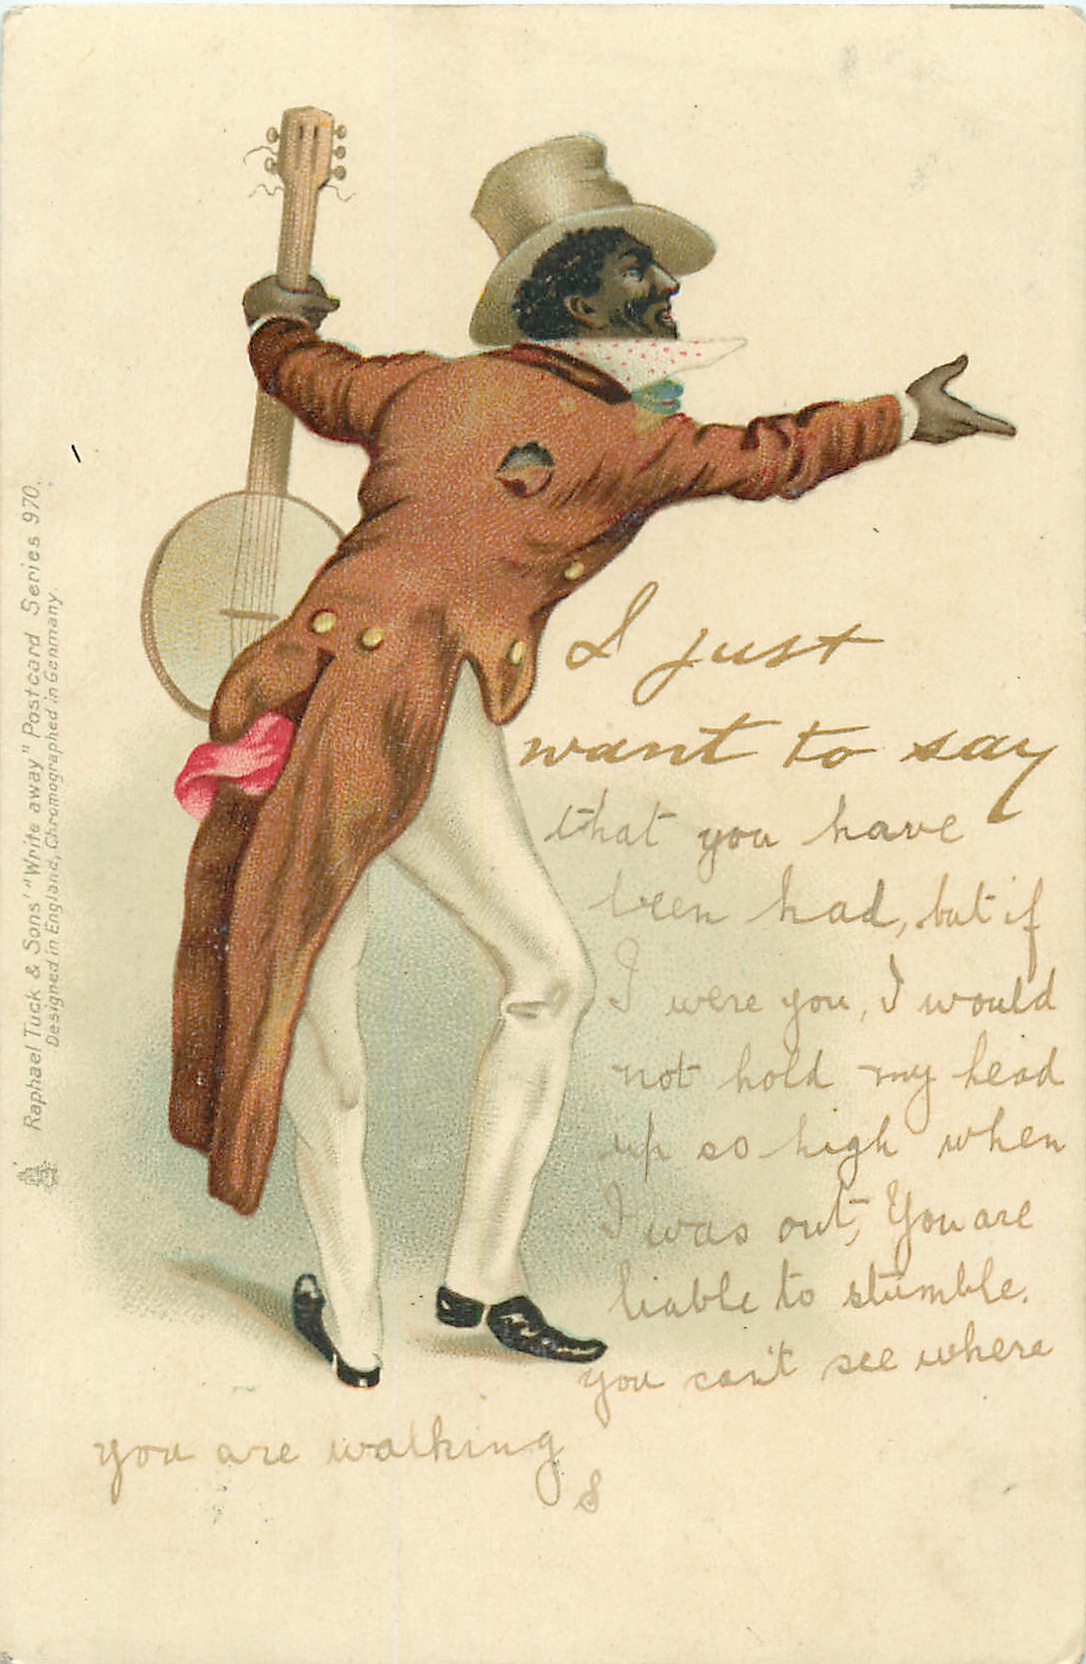 Raphael Tuck & Sons' "Write away" Postcard Series 970.
Designed in England, Chromographed in Germany.
I just
want to say
that you have
been had, but if
I were you, I would
not hold my head
up so high when
I was out, You are
liable to stumble.
you can't see where
you are walking
S